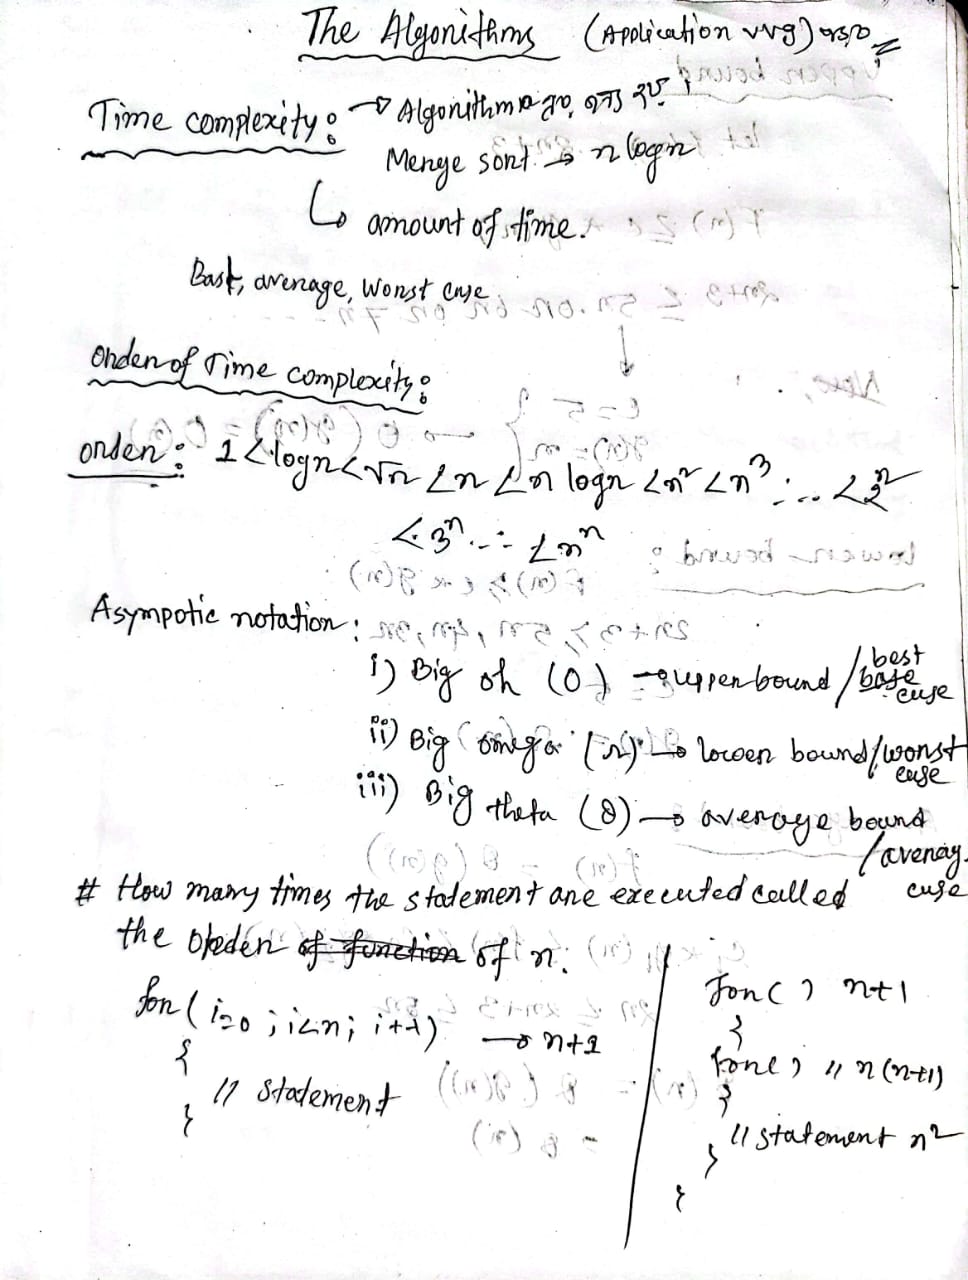 The Algorithms (Application vvg)
Time complexity: → Algorithm
Merge sort → n logn
↳ amount of time.
Bast, average, Worst case
Order of Time complexity:
order: 1 < logn < √n < n < n logn < n² < n³ ... < 2ⁿ
< 3ⁿ ... < nⁿ
Asympotic notation:
i) Big oh (O) → upperbound / best
case
ii) Big omega (Ω) → lower bound/worst
case
iii) Big theta (θ) → average bound
/averag.
case
# How many times the statement are executed called
the order of function of n.
for( i=0 ; i<n; i++) → n+1
{
// statement
}
for( ) n+1
{
for( ) // n(n+1)
{
// statement n²
}
}